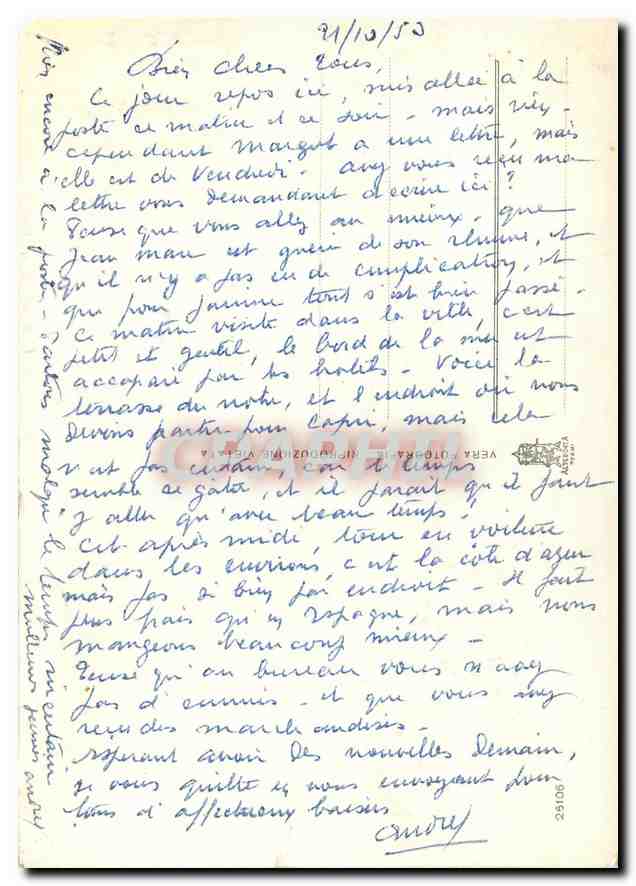 21/10/53
Bien chers tous,
Ce jour repos ici, suis allée à la
poste ce matin et ce soir - mais rien -
cependant Margot a une lettre, mais
elle est de Vendredi - avez vous reçu ma
lettre vous demandant d'écrire ici ?
Pense que vous allez au mieux - que
Jean Marc est guéri de son rhume, et
qu'il n'y a pas eu de complications, et
que pour Janine tout s'est bien passé -
Ce matin visite dans la ville, c'est
petit et gentil, le bord de la mer est
accaparé par les hotels - Voici la
terrasse du notre, et l'endroit où nous
devons partir pour Capri, mais cela
n'est pas certain, car le temps
semble se gâter, et il parait qu'il faut
y aller qu'avec beau temps !
Cet après midi, tour en voiture
dans les environs, c'est la côte d'azur
mais pas si bien par endroit - Il fait
plus frais qu'en Espagne, mais nous
mangeons beaucoup mieux -
Pense qu'au bureau vous n'avez
pas d'ennuis - et que vous avez
reçu des marchandises -
Espérant avoir des nouvelles demain,
je vous quitte en vous envoyant pour
tous d'affectueux baisers
Andrée
encore à la poste - Partons malgré le temps incertain
meilleurs baisers Andrée
CPARAMA
VERA FOTOGRAFIA RIPRODUZIONE VIETATA
25106